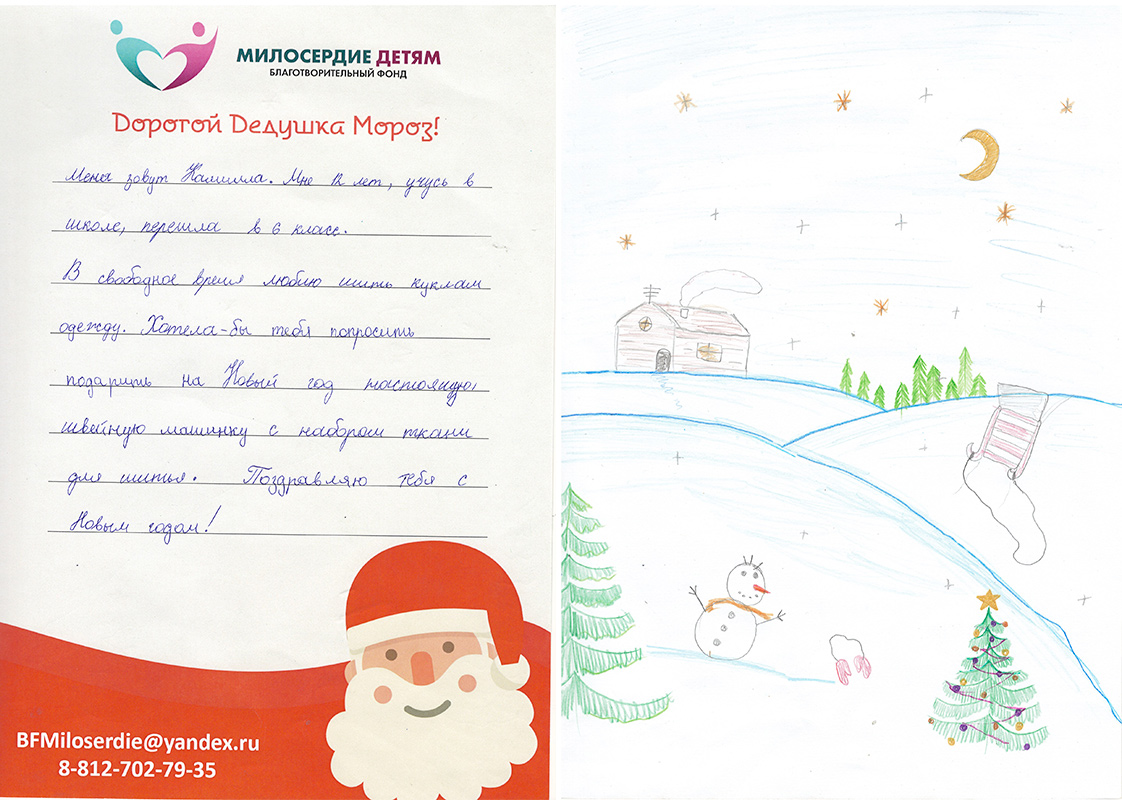 МИЛОСЕРДИЕ ДЕТЯМ
БЛАГОТВОРИТЕЛЬНЫЙ ФОНД
Дорогой Дедушка Мороз!
Меня зовут Камилла. Мне 12 лет, учусь в
школе, перешла в 6 класс.
В свободное время люблю шить куклам
одежду. Хотела-бы тебя попросить
подарить на Новый год настоящую
швейную машинку с набором ткани
для шитья. Поздравляю тебя с
Новым годом!
BFMiloserdie@yandex.ru
8-812-702-79-35